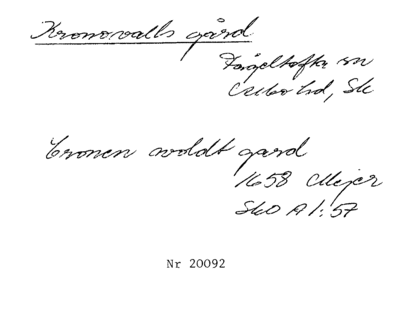 Kronovalls gård
Fågeltofta sn
Albo hd, Sk
Cronen woldt gard
1658 Mejer
SkO A 1:57
Nr 20092